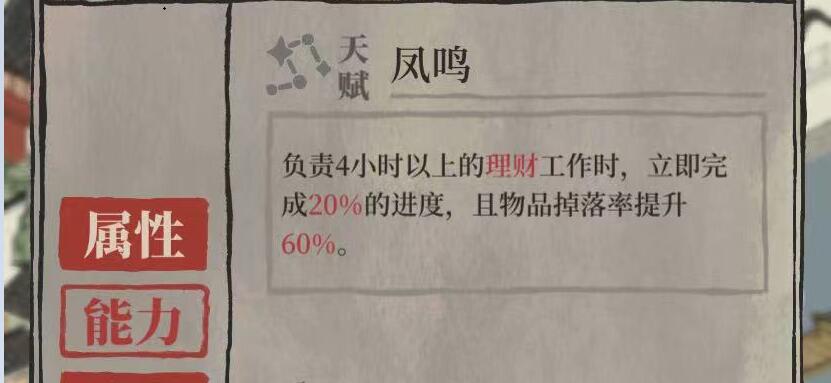 天赋
凤鸣
负责4小时以上的理财工作时，立即完
成20%的进度，且物品掉落率提升
60%。
属性
能力